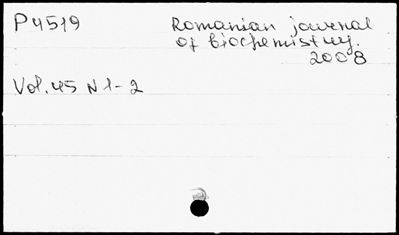 P4519
Romanian journal
of biochemistry.
2008
Vol. 45 N 1-2